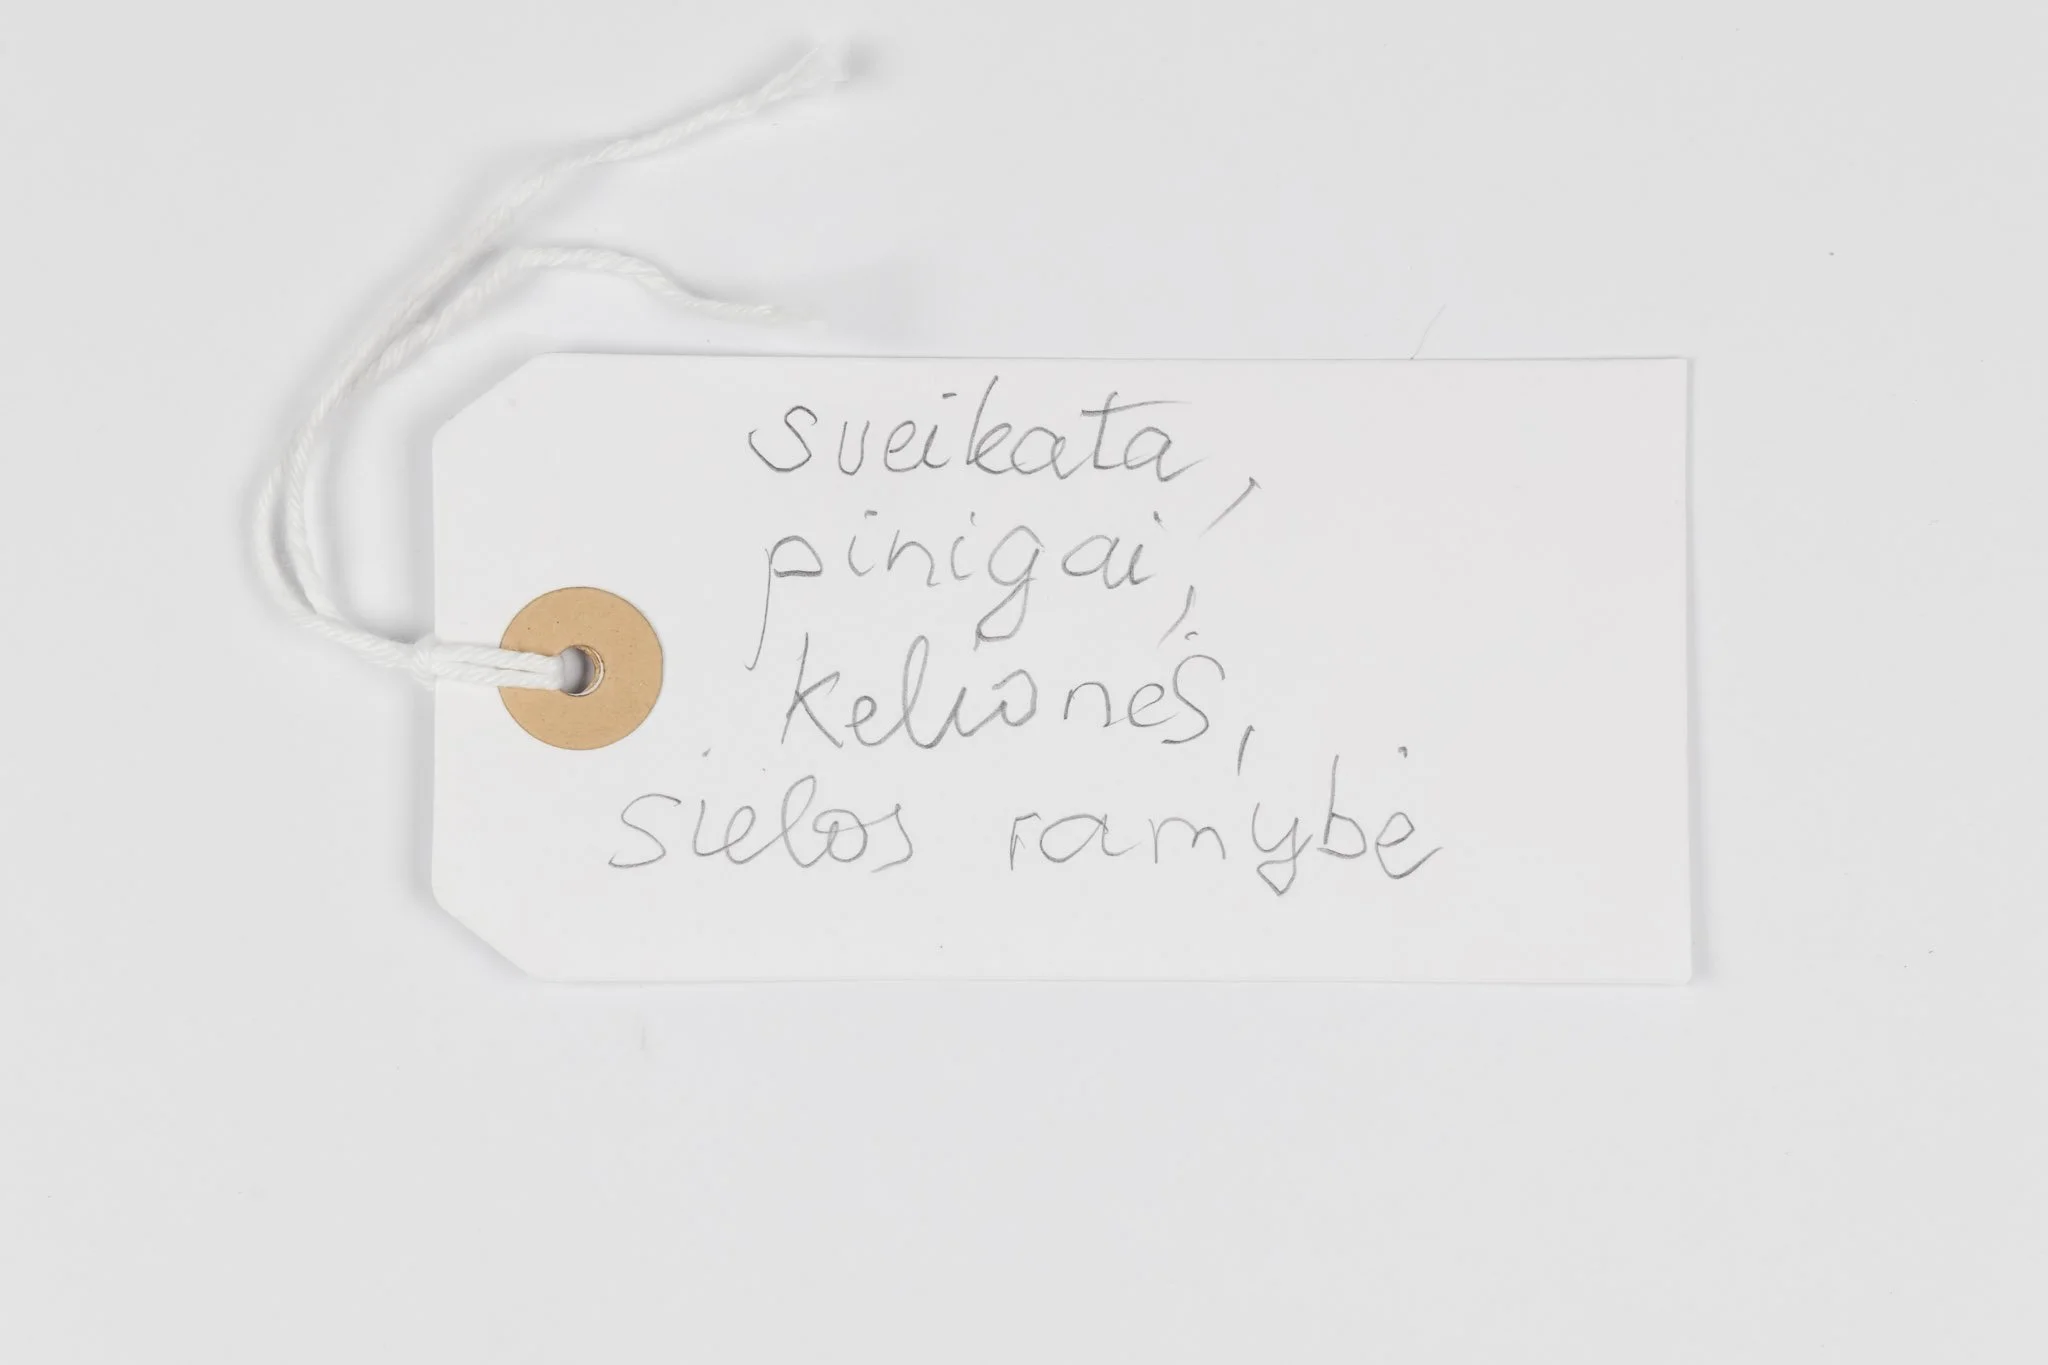 sveikata,
pinigai,
kelionės,
sielos ramybė